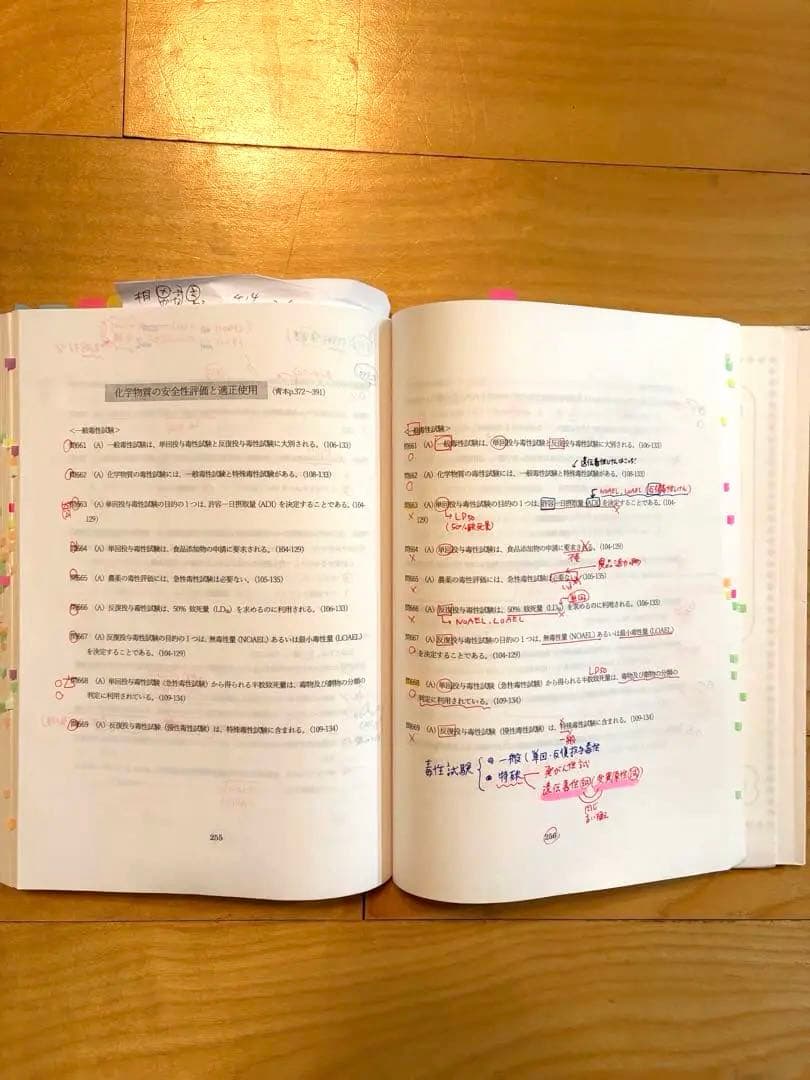 化学物質の安全性評価と適正使用 (青本p.372~391)
<一般毒性試験>
問661 (A) 一般毒性試験は、単回投与毒性試験と反復投与毒性試験に大別される。(106-133)
問662 (A) 化学物質の毒性試験には、一般毒性試験と特殊毒性試験がある。(108-133)
問663 (A) 単回投与毒性試験の目的の1つは、許容一日摂取量 (ADI) を決定することである。(104-
129)
問664 (A) 単回投与毒性試験は、食品添加物の申請に要求される。(104-129)
問665 (A) 農薬の毒性評価には、急性毒性試験は必要ない。(105-135)
問666 (A) 反復投与毒性試験は、50% 致死量 (LD50) を求めるのに利用される。(106-133)
問667 (A) 反復投与毒性試験の目的の1つは、無毒性量 (NOAEL) あるいは最小毒性量 (LOAEL)
を決定することである。(104-129)
問668 (A) 単回投与毒性試験(急性毒性試験)から得られる半数致死量は、毒物及び劇物の分類の
判定に利用されている。(109-134)
問669 (A) 反復投与毒性試験(慢性毒性試験)は、特殊毒性試験に含まれる。(109-134)
255
<一般毒性試験>
問661 (A) 一般毒性試験は、単回投与毒性試験と反復投与毒性試験に大別される。(106-133)
問662 (A) 化学物質の毒性試験には、一般毒性試験と特殊毒性試験がある。(108-133)
NOAEL, LOAEL
問663 (A) 単回投与毒性試験の目的の1つは、許容一日摂取量 (ADI) を決定することである。(104-
129)
LD50
(50%致死量)
問664 (A) 単回投与毒性試験は、食品添加物の申請に要求される。(104-129)
不要
食品添加物
問665 (A) 農薬の毒性評価には、急性毒性試験は必要ない。(105-135)
単回
問666 (A) 反復投与毒性試験は、50% 致死量 (LD50) を求めるのに利用される。(106-133)
NOAEL, LOAEL
問667 (A) 反復投与毒性試験の目的の1つは、無毒性量 (NOAEL) あるいは最小毒性量 (LOAEL)
を決定することである。(104-129)
LD50
問668 (A) 単回投与毒性試験(急性毒性試験)から得られる半数致死量は、毒物及び劇物の分類の
判定に利用されている。(109-134)
問669 (A) 反復投与毒性試験(慢性毒性試験)は、特殊毒性試験に含まれる。(109-134)
一般
毒性試験
一般(単回・反復投与毒性
特殊
発がん性試
遺伝毒性試(変異原性試)
256